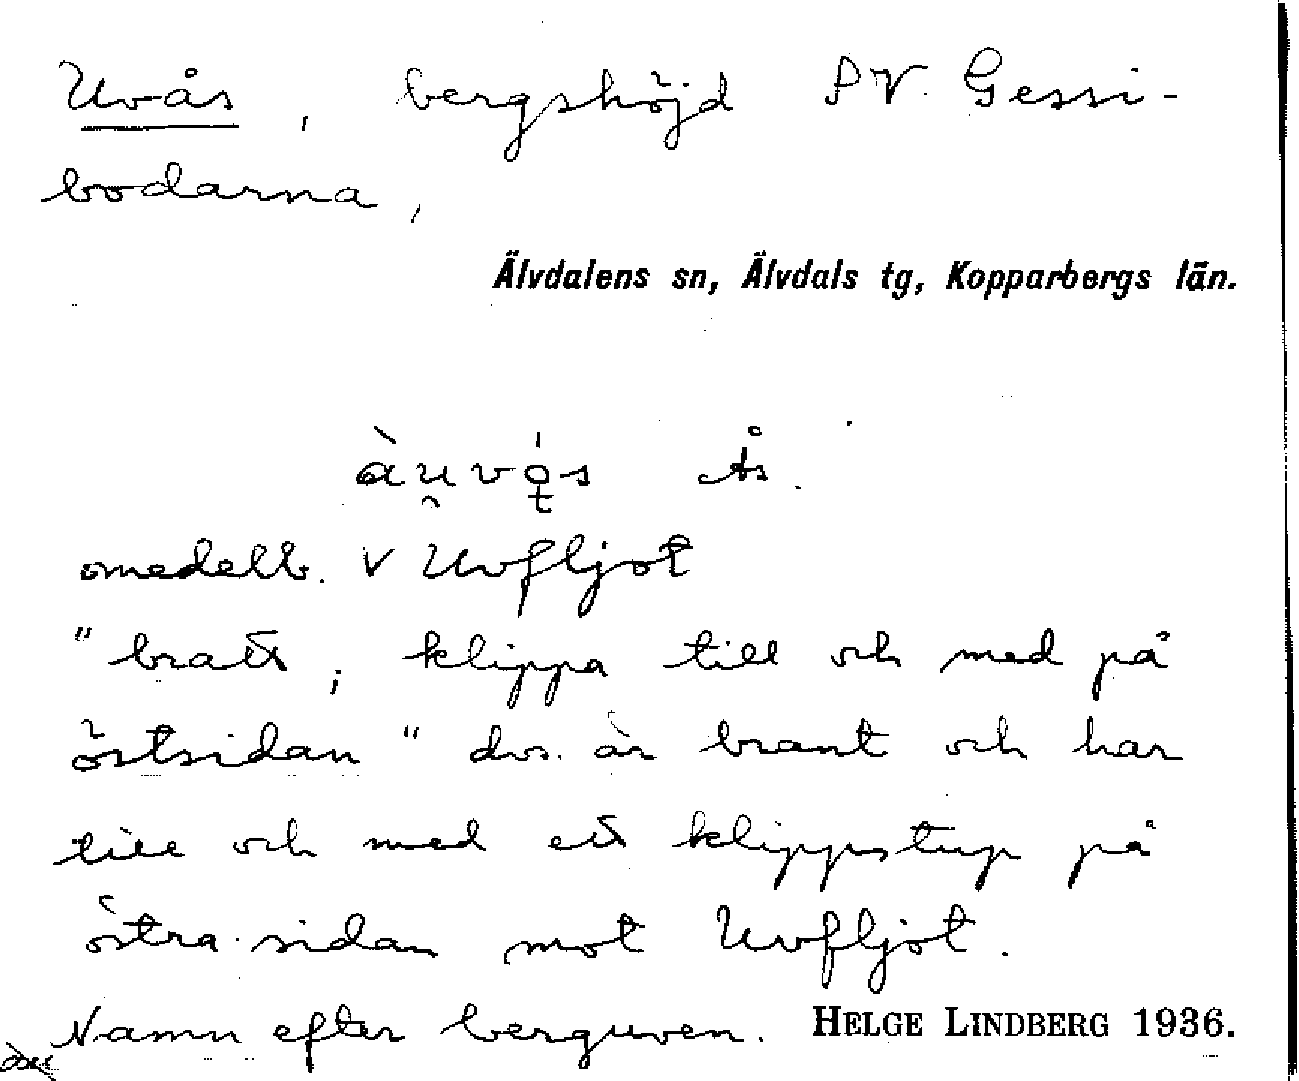 Uvås, bergshöjd SV. Gessi-
bodarna,
Älvdalens sn, Älvdals tg, Kopparbergs län.
Ås.
omedelb. V Uvfljot
"bratt, klippa till och med på
östsidan" dvs. är brant och har
till och med ett klippstup på
östra sidan mot Uvfljot.
Namn efter berguven. HELGE LINDBERG 1936.